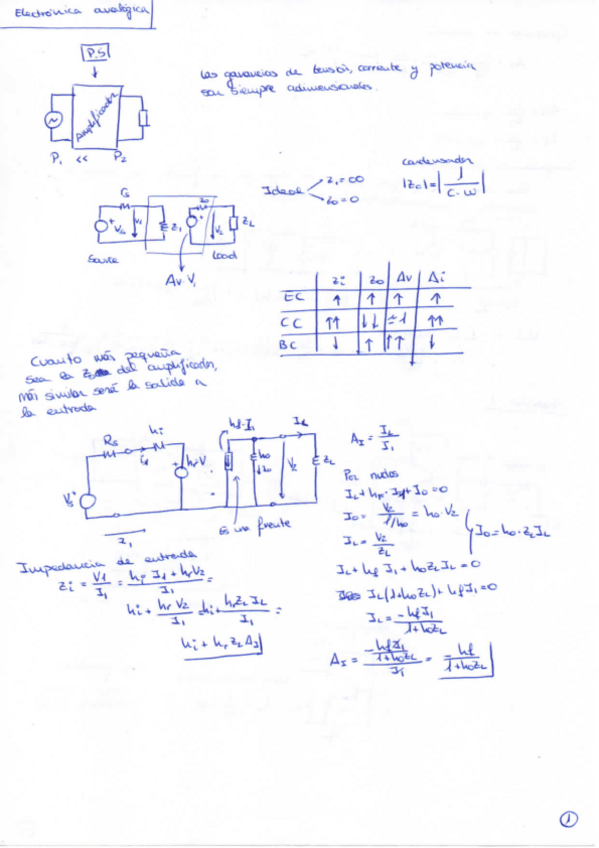 Electrónica analógica
P.S
Amplificador
P₁ << P₂
Las ganancias de tensión, corriente y potencia
son siempre adimensionales.
Ideal
Z₁=∞
Z₀=0
condensador
|Z₀|=|1/(C·ω)|
V₁
Z₁
Z₀
V₂
Z_L
Source
Load
Av·V₁
Zi Z₀ Av Ai
EC ↑ ↑ ↑ ↑
CC ↑↑ ↓↓ ≃1 ↑↑
BC ↓ ↑ ↑↑ ↓
Cuanto más pequeña
sea la del amplificador,
más similar será la salida a
la entrada
Rs
hi
hf·I₁
I_L
h₀
V₂
Z_L
Vs
Z₁
Es una fuente
A_I = I_L/I₁
Por nudos
I_L + hf·I₁ + I₀ = 0
I₀ = V₂/(1/h₀) = h₀·V₂
I_L = V₂/Z_L
I₀ = h₀·Z_L I_L
I_L + hf I₁ + h₀Z_L I_L = 0
I_L(1+h₀Z_L) + hf I₁ = 0
I_L = -hf I₁/(1+h₀Z_L)
A_I = (-hf I₁/(1+h₀Z_L))/I₁ = -hf/(1+h₀Z_L)
Impedancia de entrada
Zi = V₁/I₁ = (hi I₁ + hr V₂)/I₁ =
hi + hr V₂/I₁ = hi + hr Z_L I_L/I₁ =
hi + hr Z_L A_I
1